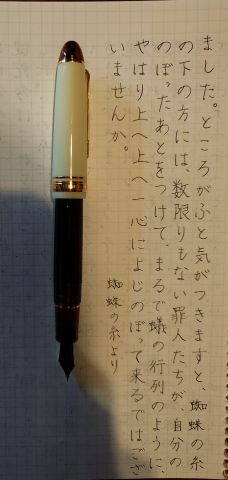 ました。ところがふと気がつきますと、蜘蛛の糸
の下の方には、数限りもない罪人たちが、自分の
のぼったあとをつけて、まるで蟻の行列のように、
やはり上へ上へ一心によじのぼって来るではござ
いませんか。
蜘蛛の糸より